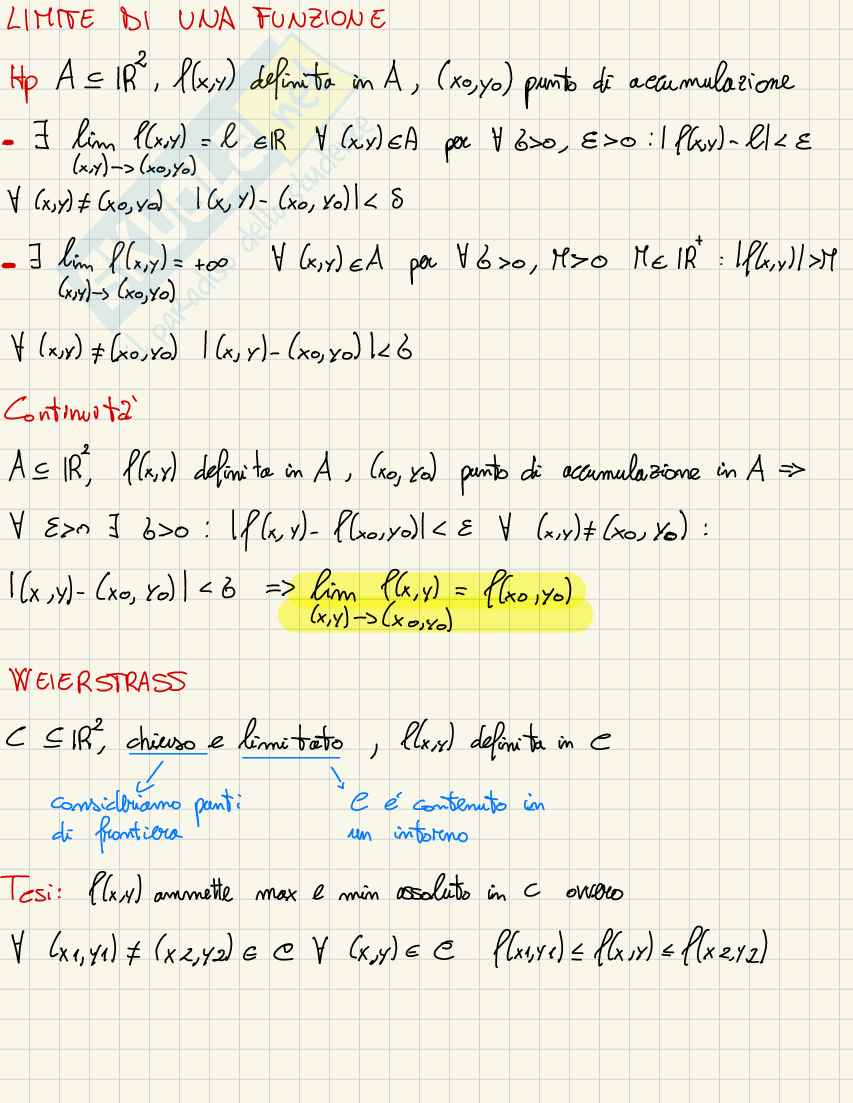 LIMITE DI UNA FUNZIONE
Hp A ⊆ ℝ², f(x,y) definita in A, (x0,y0) punto di accumulazione
- ∃ lim f(x,y) = l ∈ ℝ ∀ (x,y)∈A per ∀ δ>0, ε>0 : |f(x,y) - l| < ε
(x,y)->(x0,y0)
∀ (x,y) ≠ (x0,y0) |(x,y) - (x0,y0)| < δ
- ∃ lim f(x,y) = +∞ ∀ (x,y)∈A per ∀ δ>0, M>0 M∈ℝ⁺ : |f(x,y)| > M
(x,y)->(x0,y0)
∀ (x,y) ≠ (x0,y0) |(x,y) - (x0,y0)| < δ
Continuità
A ⊆ ℝ², f(x,y) definita in A, (x0,y0) punto di accumulazione in A =>
∀ ε>0 ∃ δ>0 : |f(x,y) - f(x0,y0)| < ε ∀ (x,y) ≠ (x0,y0) :
|(x,y) - (x0,y0)| < δ => lim f(x,y) = f(x0,y0)
(x,y)->(x0,y0)
WEIERSTRASS
C ⊆ ℝ², chiuso e limitato, f(x,y) definita in C
consideriamo punti di frontiera
C é contenuto in un intorno
Tesi: f(x,y) ammette max e min assoluto in C ovvero
∀ (x1,y1) ≠ (x2,y2) ∈ C ∀ (x,y) ∈ C f(x1,y1) ≤ f(x,y) ≤ f(x2,y2)
SKUOLA.net
il paradiso dello studente